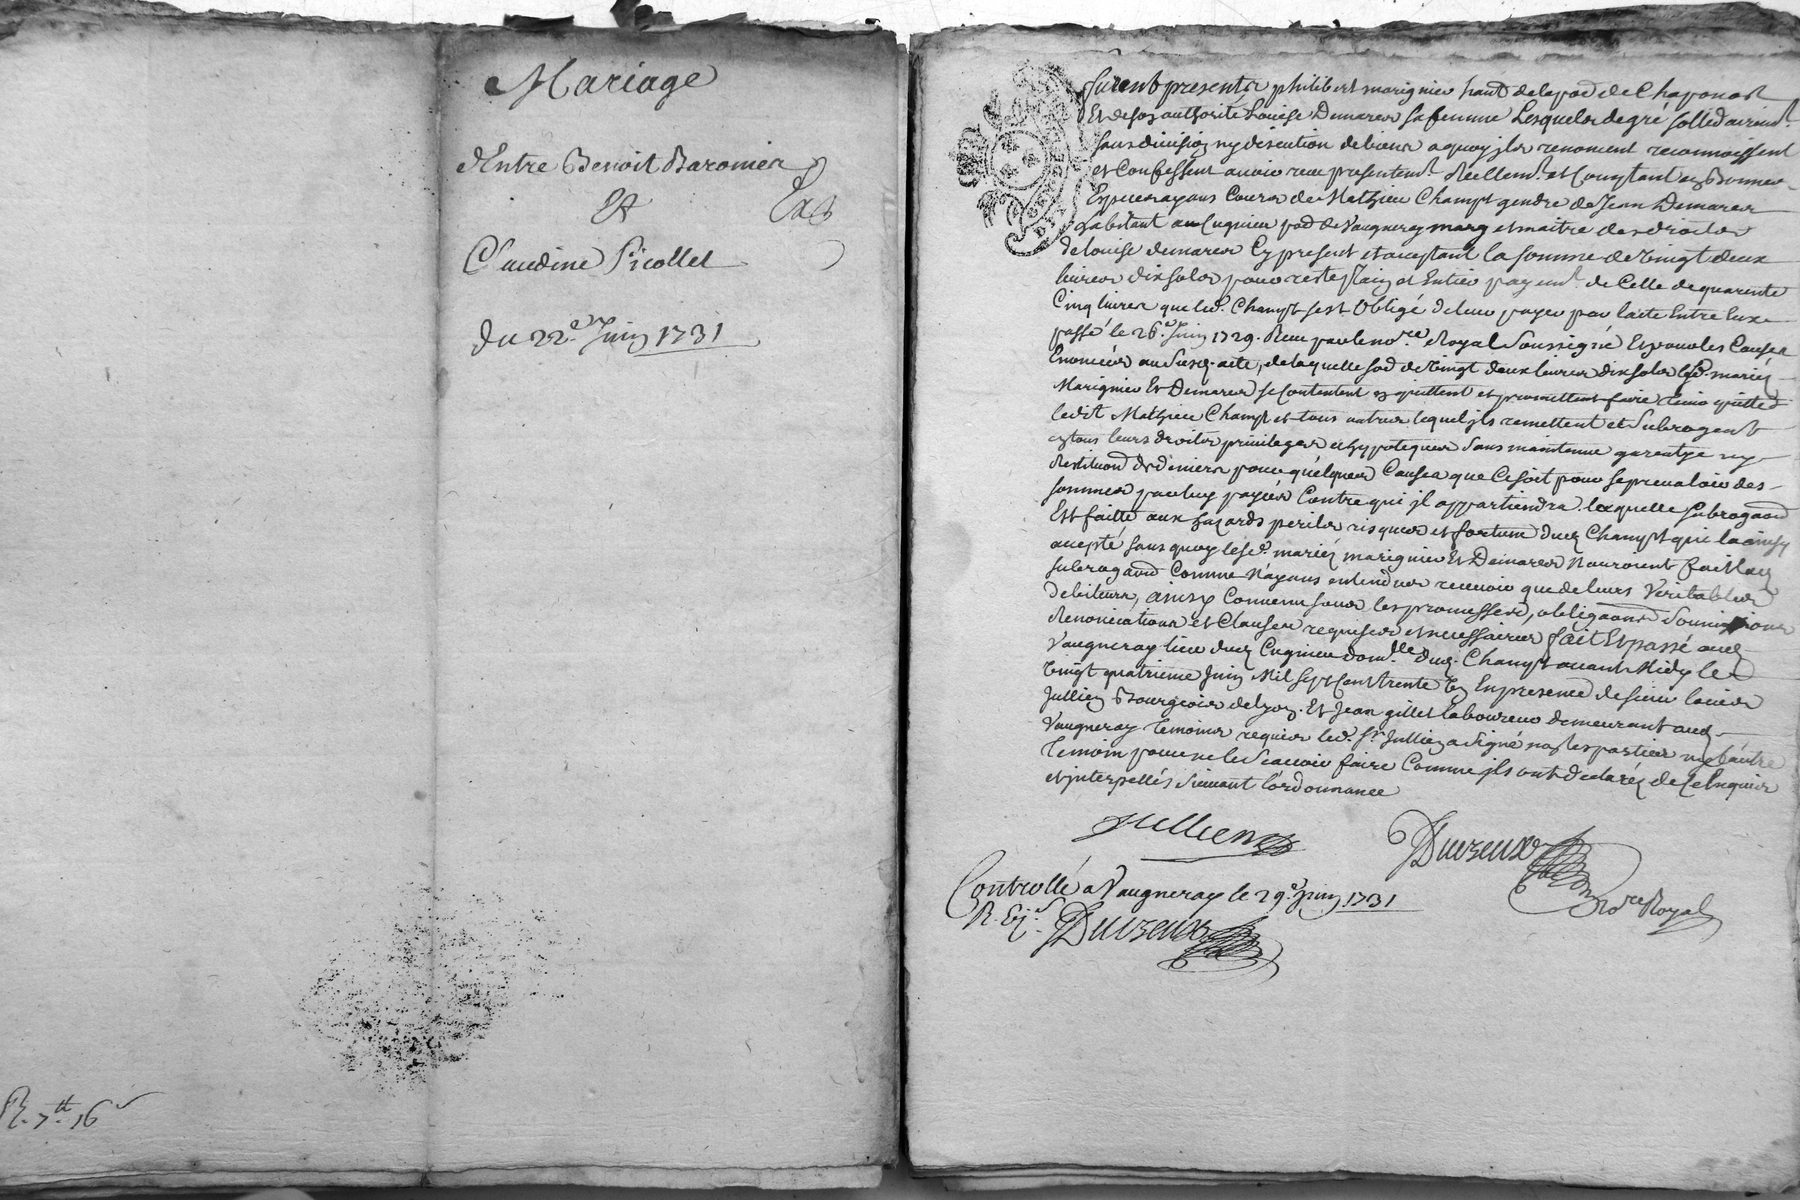 Mariage
d'Entre Benoit Baronier
Et
Claudine Picollet
Du 22.e Juin 1731
R. 7.tt 16 s
furent presents philibert marignier hant de la par de Chaponost
Et de son authorité Louise Demares sa femme Lesquels de gré solledairemt.
sans division ny discution de biens a quoy jls renoncent reconnoissent
et Confessent avoir receu presentemt. Réellemt. et Comptant en Bonnes
Especes ayans Cours de Mathieu Champt gendre de Jean Demares
habitant au Cuginieu par de Vaugneray mary et maitre des droits
de Louise demares Cy present et aceptant la somme de vingt deux
livres dix sols pour reste Plain et Entier payemt. de Celle de quarente
Cinq livres que led. Champt sest Obligé de leur payer par lacte Entre Eux
passé le 26.e Juin 1729. Receu par le no.re Royal soussigné Et pour les Causes
Enoncées au susd. acte, de laquelle som de vingt deux livres dix sols lesd. mariés
Marignier Et Demares se Contentent en quittent et promettent faire tenir quitte
ledit Mathieu Champt et tous autres lequel jls remettent et subrogent
en tous leurs droits privileges et hypoteques sans maintenue garentye ny
Restitution de deniers pour quelques Causes que Ce soit pour se prevaloir des
sommes par luy payées Contre qui jl appartiendra laquelle subrogaon
Est faitte aux hazards perils risques et fortune dud. Champt qui la ainsy
accepté sans quoy lesd. mariés marignier Et Demares nauroient fait lad.
subrogaon Comme n'ayans entendus recevoir que de leurs Veritables
debiteurs, ainsy Convenu sous les promesses, obligaons soumissions
Renonciations et Clauses requises et necessaires fait Et passé aud.
Vaugneray lieu dud. Cuginieu domlle dud. Champt avant Midy le
vingt quatrieme Juin Mil sept Cent trente Un En presence de sieur
Jullien Bourgeois de Lyon. Et Jean gillet laboureur demeurant aud.
Vaugneray temoins requis led. sr. Jullien a signé non les parties ny l'autre
temoin pour ne le scavoir faire Comme jls ont declarés de Ce Enquis
et interpellés suivant l'ordonnance
Jullien
Duvzeux
No.re Royal
Controllé a Vaugneray le 29.e juin 1731
Duvzeux